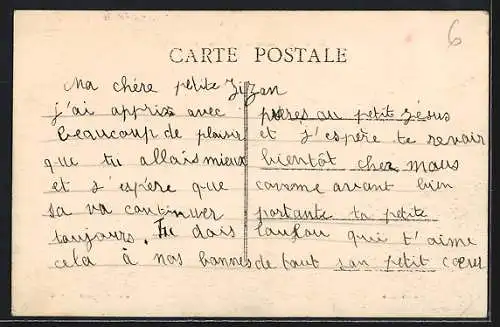 CARTE POSTALE
6
Ma chère petite Zizan
j'ai appris avec
beaucoup de plaisir
que tu allais mieux
et j'espére que
sa va continuer
toujours. Tu dois
cela à nos bonnes
prières au petit Jésus
et j'espère te revoir
bientôt chez nous
comme avant bien
portante ta petite
Loulou qui t'aime
de tout son petit cœur